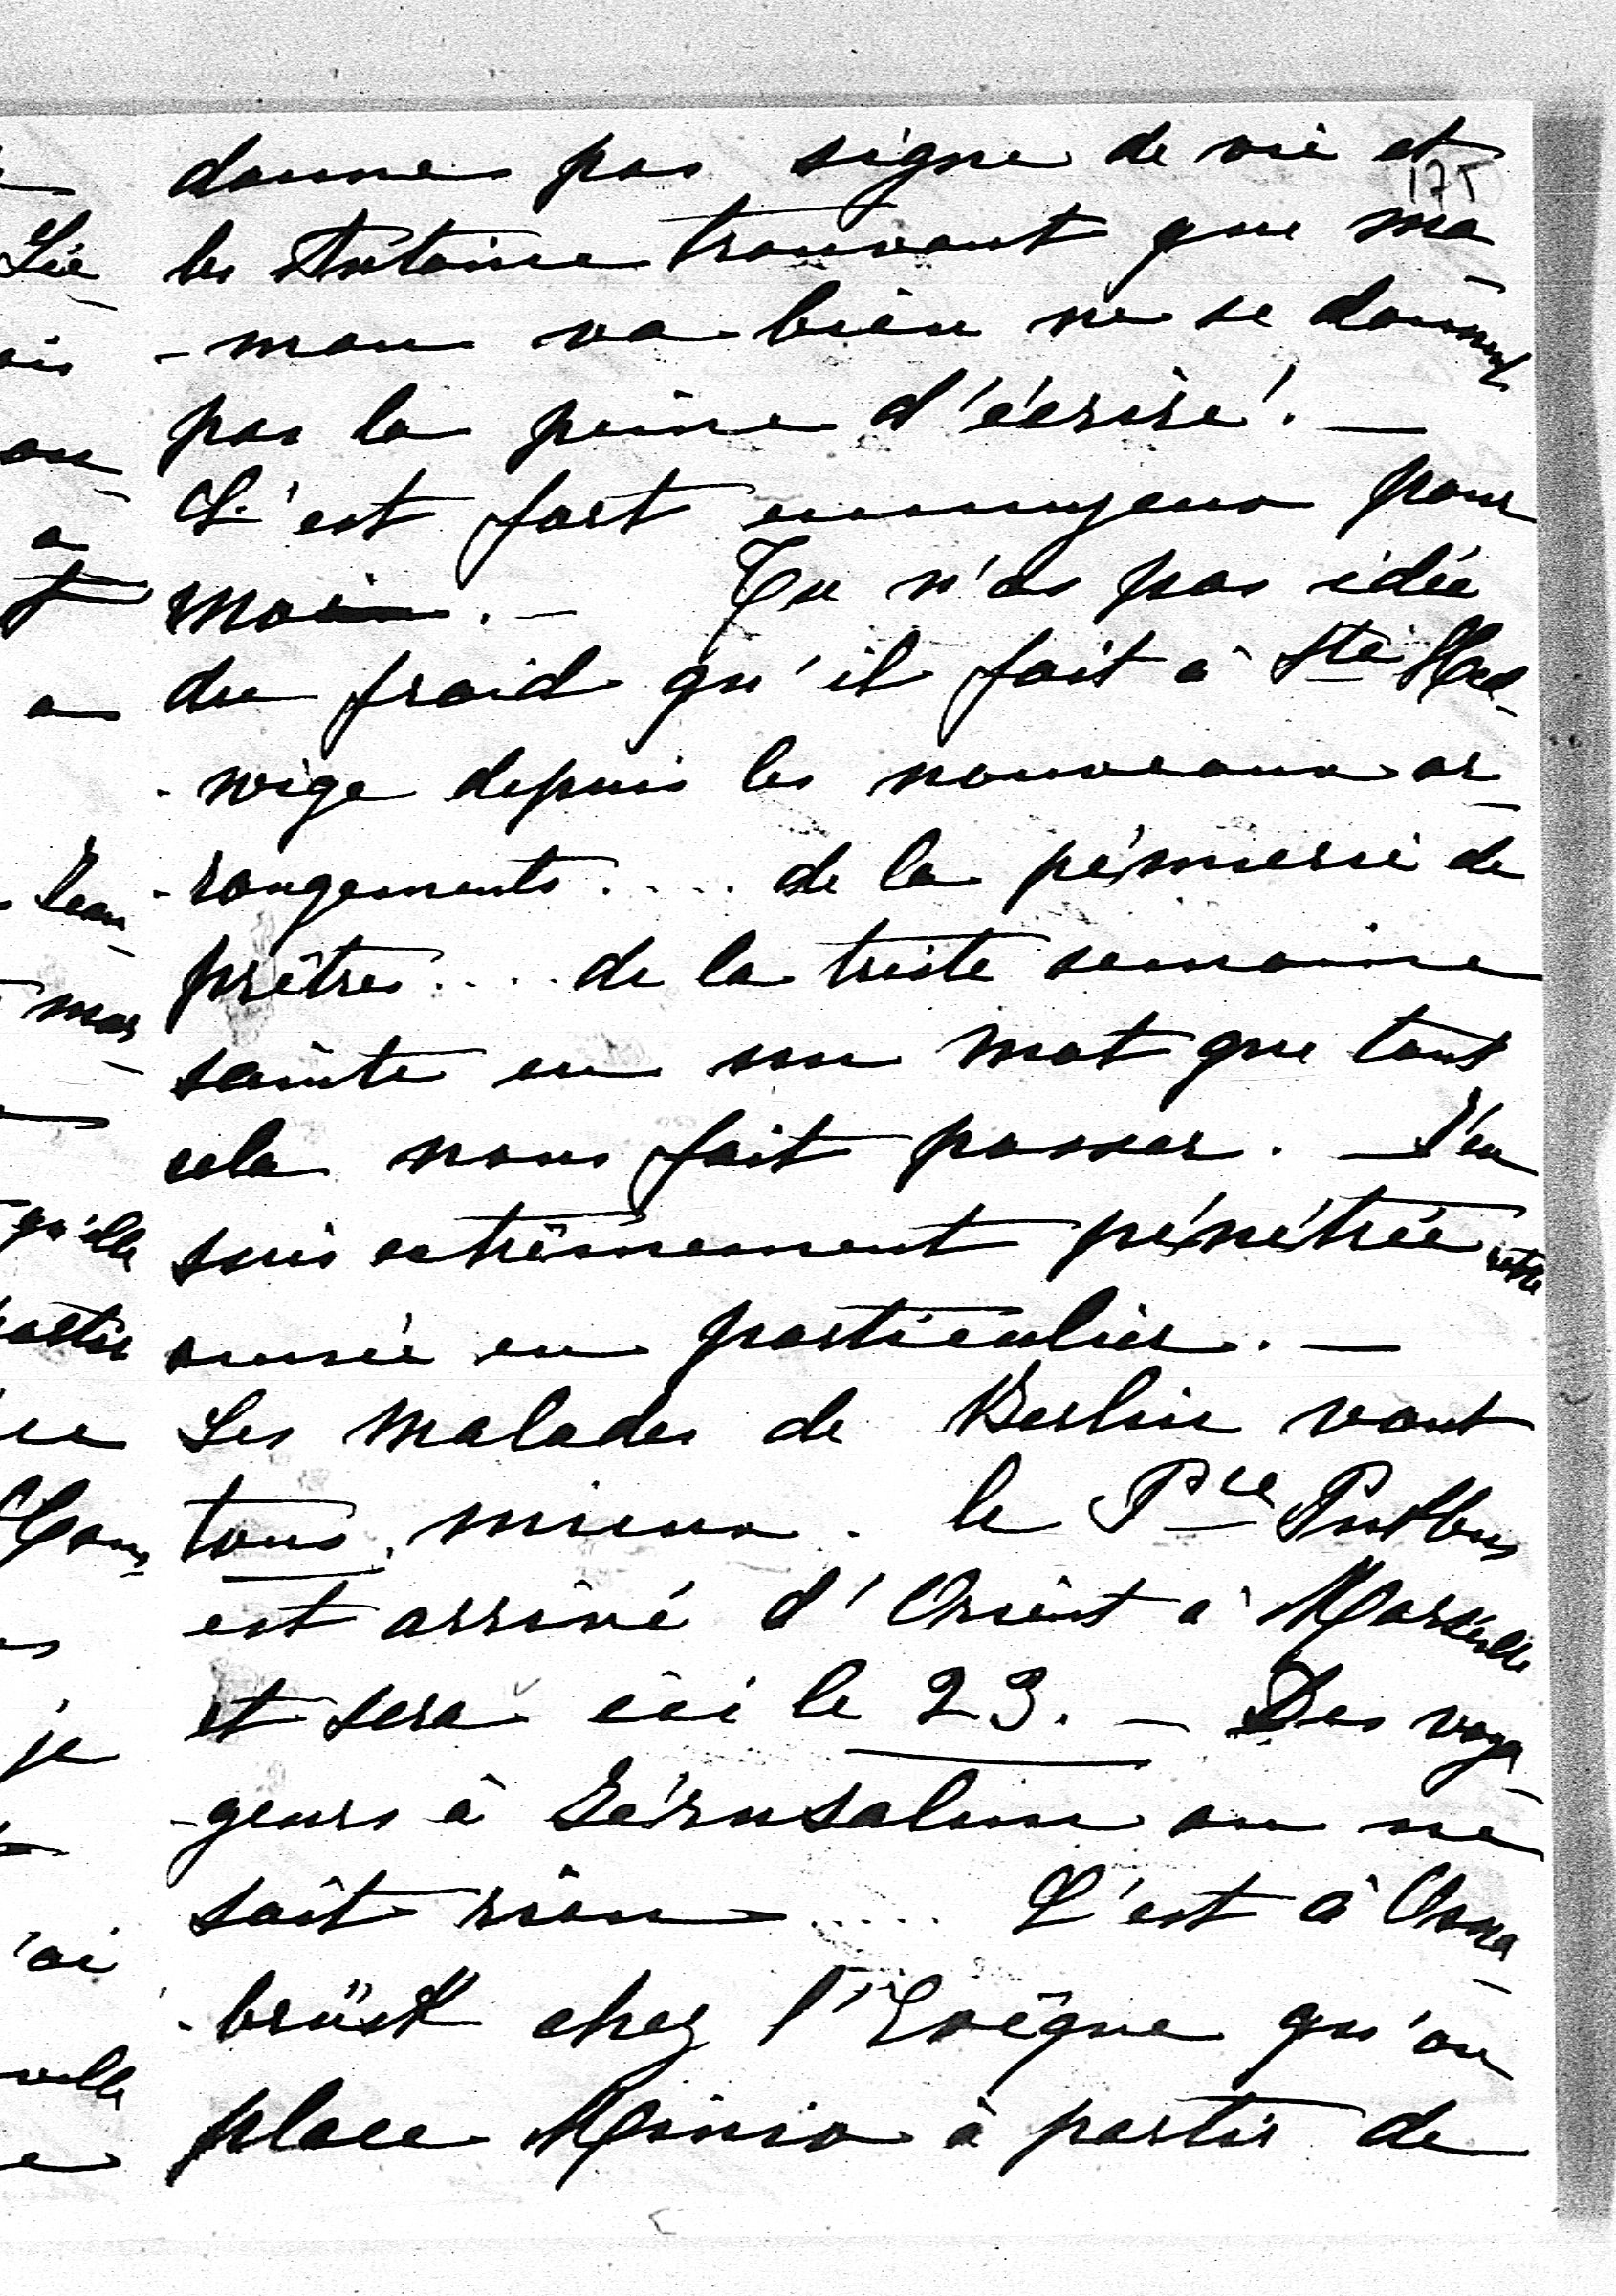 donne pas signe de vie et
175
les Antoine trouvant que ma
-man va bien ne se donnent
pas la peine d'écrire. —
C'est fort ennuyeux pour
moi. — Tu n'as pas idée
du froid qu'il fait à Ste Hed-
-wige depuis les nouveaux ar-
-rangements .... de la pénurie de
prêtres .... de la triste semaine
sainte en un mot que tout
cela nous fait passer. — J'en
suis extrêmement pénétrée cette
année en particulier. —
Les malades de Berlin vont
tous mieux. le Pce Putbus
est arrivé d'Orient à Marseille
et sera ici le 23. — Des voya-
-geurs à Jérusalem on ne
sait rien ..... C'est à Osna-
-brück chez l'Evêque qu'on
place Minio à partir de